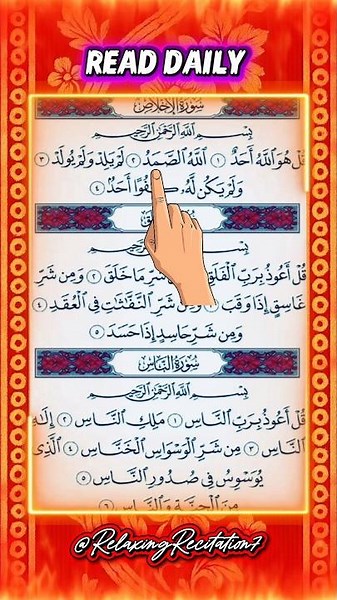 READ DAILY
سُورَةُ الإِخْلَاصِ
بِسْمِ اللَّهِ الرَّحْمَٰنِ الرَّحِيمِ
قُلْ هُوَ ٱللَّهُ أَحَدٌ ١ ٱللَّهُ ٱلصَّمَدُ ٢ لَمْ يَلِدْ وَلَمْ يُولَدْ ٣
وَلَمْ يَكُن لَّهُۥ كُفُوًا أَحَدٌۢ ٤
بِسْمِ
قُلْ أَعُوذُ بِرَبِّ ٱلْفَلَقِ شَرِّ مَا خَلَقَ ٢ وَمِن شَرِّ
غَاسِقٍ إِذَا وَقَبَ ٣ وَمِن شَرِّ ٱلنَّفَّـٰثَـٰتِ فِى ٱلْعُقَدِ ٤
وَمِن شَرِّ حَاسِدٍ إِذَا حَسَدَ ٥
سُورَةُ النَّاسِ
بِسْمِ اللَّهِ الرَّحْمَٰنِ الرَّحِيمِ
قُلْ أَعُوذُ بِرَبِّ ٱلنَّاسِ ١ مَلِكِ ٱلنَّاسِ ٢ إِلَـٰهِ
ٱلنَّاسِ ٣ مِن شَرِّ ٱلْوَسْوَاسِ ٱلْخَنَّاسِ ٤ ٱلَّذِى
يُوَسْوِسُ فِى صُدُورِ ٱلنَّاسِ ٥
مِنَ ٱلْجِنَّةِ وَٱلنَّاسِ ٦
@RelaxingRecitation7